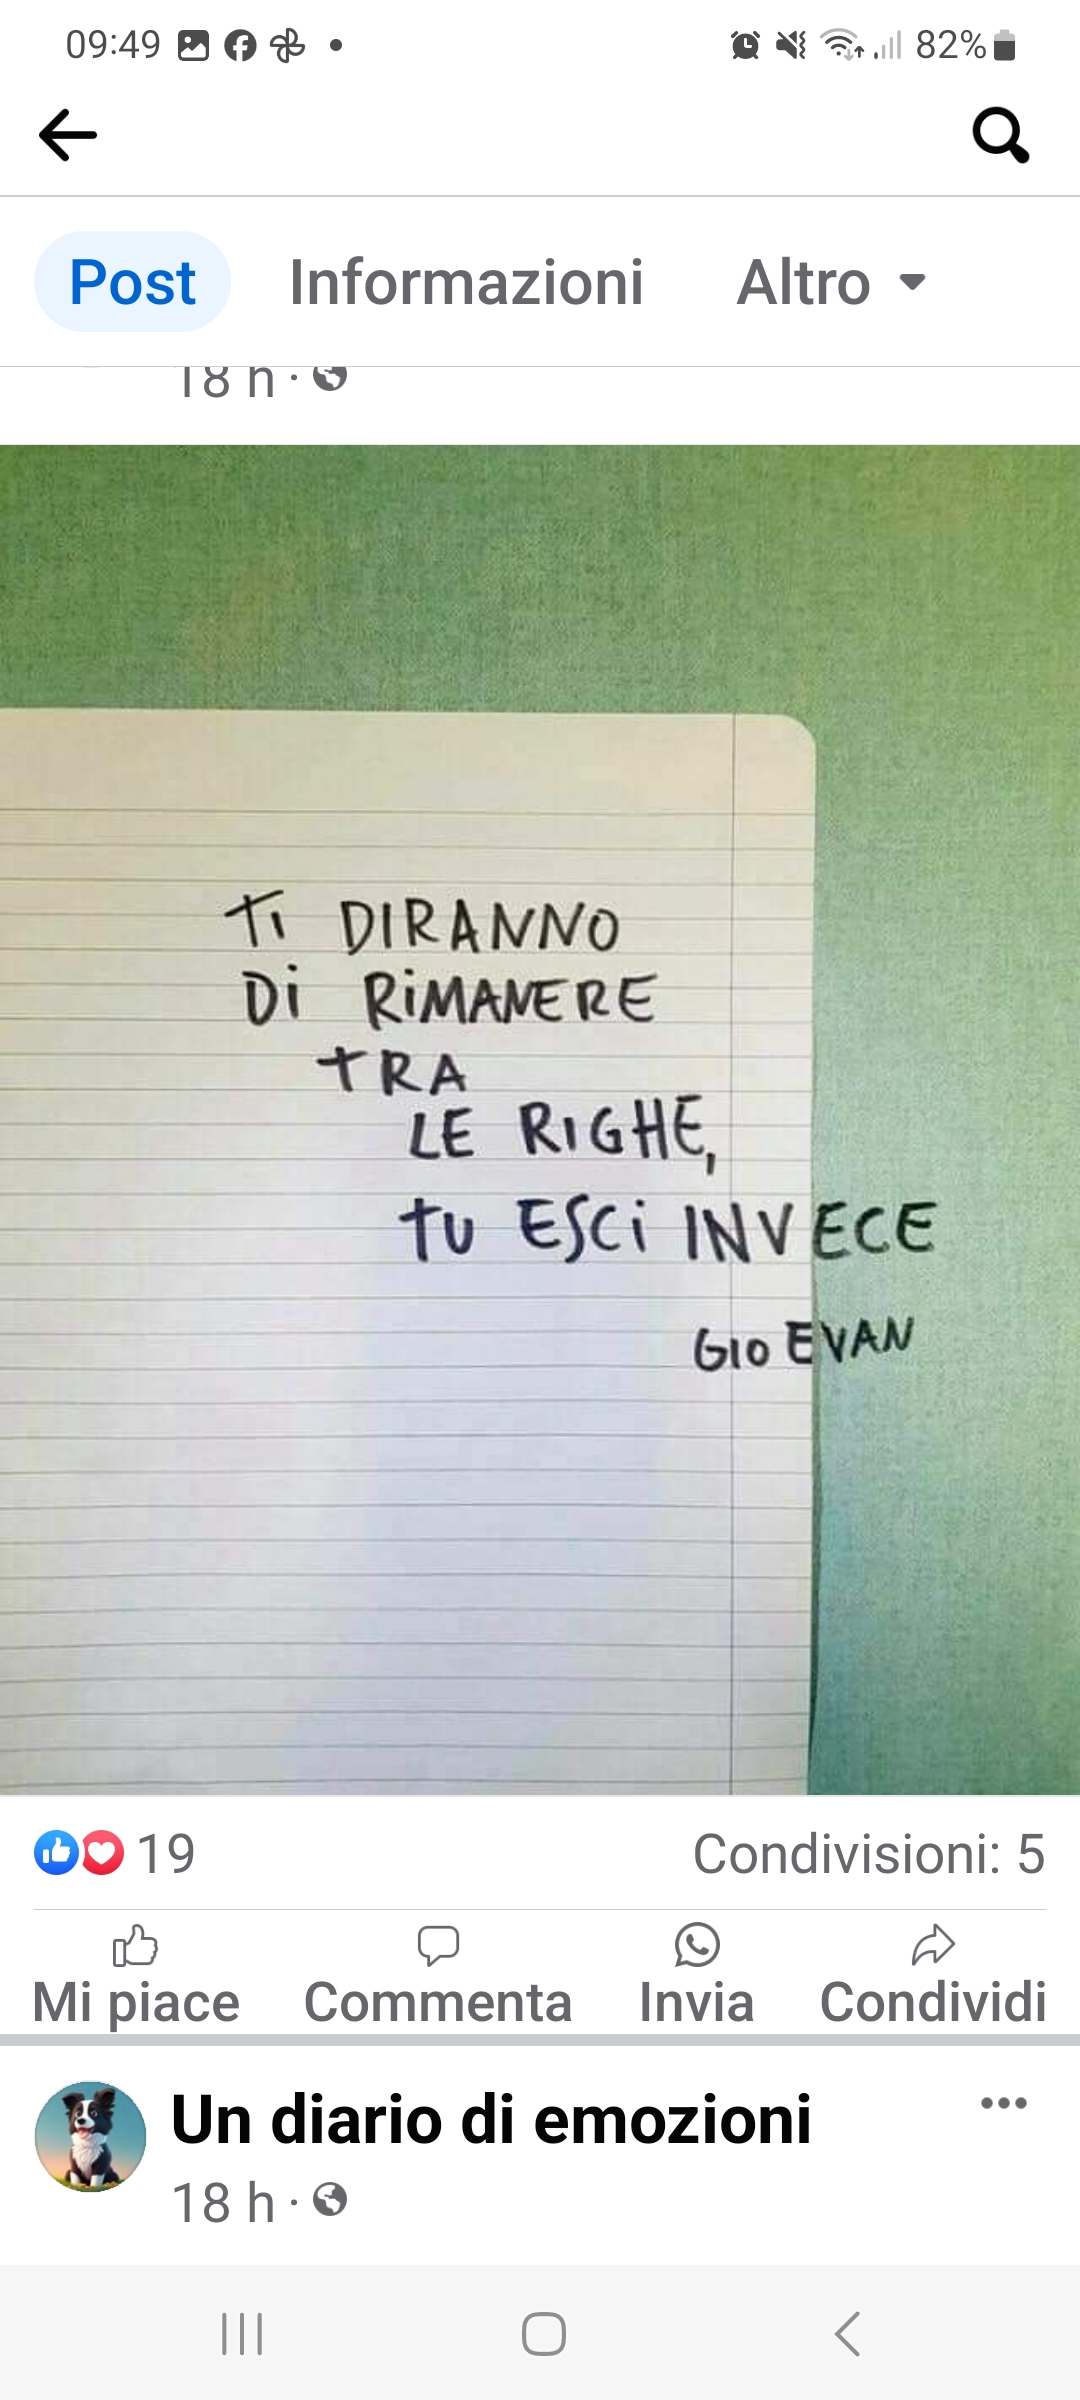 09:49 82%
Post Informazioni Altro
18 h
Ti DIRANNO
Di RiMANERE
TRA
LE RIGHE,
TU ESCi INVECE
GIO EVAN
19 Condivisioni: 5
Mi piace Commenta Invia Condividi
Un diario di emozioni
18 h